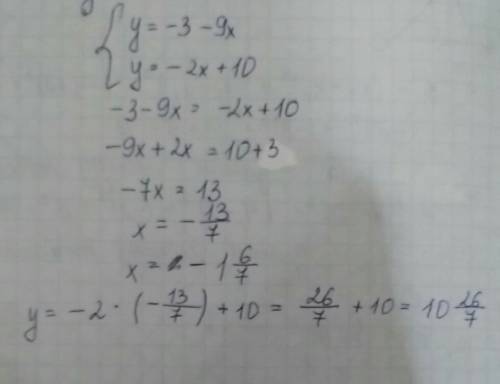 { y = -3 - 9x
y = -2x + 10
-3 - 9x = -2x + 10
-9x + 2x = 10 + 3
-7x = 13
x = - 13/7
x = - 1 6/7
y = -2 · (- 13/7) + 10 = 26/7 + 10 = 10 26/7